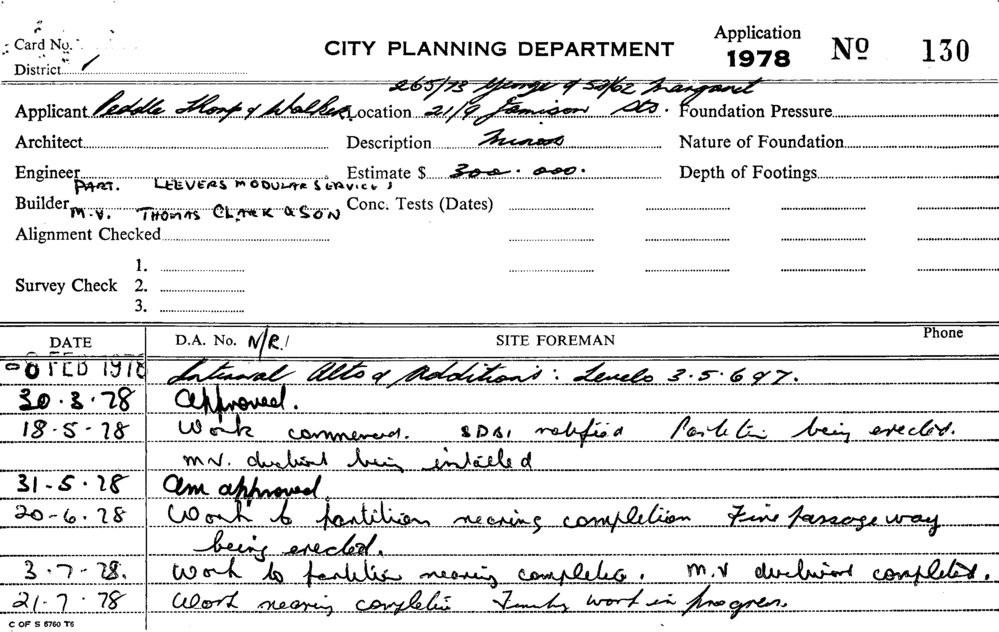 Card No.
CITY PLANNING DEPARTMENT
Application
1978
No
130
District 1
265/73 George & 50/62 Margaret
Applicant Peddle Thorp & Walker
Location 21/9 Jamison Sts.
Foundation Pressure
Architect
Description Minor
Nature of Foundation
Engineer
Estimate $ 300.000.
Depth of Footings
PART. LEEVERS MODULAR SERVICES
Builder
M.V. THOMAS CLARK & SON
Conc. Tests (Dates)
Alignment Checked
Survey Check
1.
2.
3.
DATE
D.A. No. N/R.
SITE FOREMAN
Phone
FEB 1978
Internal Alts & Additions: Levels 3.5.6 & 7.
30.3.78
Approved.
18-5-78
Work commenced. notified Partition being erected.
M.V. ductwork being installed
31-5-78
Am approved
20-6.78
Work to partitions nearing completion Fire passage way
being erected.
3.7-78.
Work to partition nearing completion. M.V ductwork completed.
21.7.78
Work nearing completion work in progress.
C OF S 8760 T6